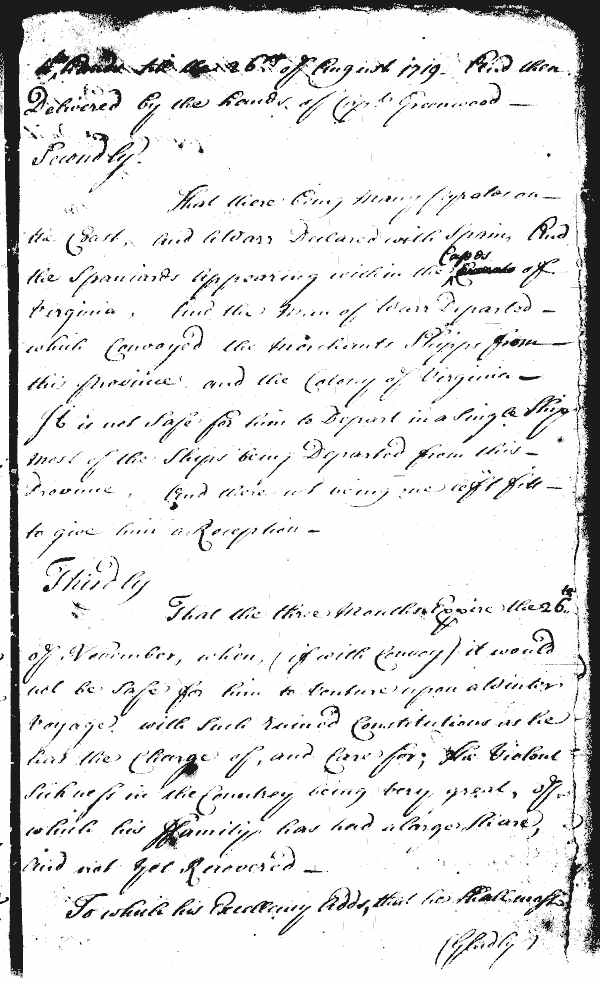 hands till the 26th of August 1719. And then
Delivered by the hands of Capt. Greenwood —
Secondly.
That there being many Pyrates on —
the Coast, And Warr Declared with Spain, And
the Spaniards Appearing within the Capes of
Virginia, And the Men of Warr Departed —
which Convoyed the Merchants Shipps from —
this Province and the Colony of Virginia —
It is not Safe for him to Depart in a Single Ship
most of the Ships being Departed from this —
Province, And there not being one left fitt —
to give him a Reception —
Thirdly
That the three Months Expire the 26th
of November, when, (if with Convoy) it would
not be Safe for him to venture upon a Winter
Voyage with Such ruined Constitutions as he
has the Charge of, and Care for; the Violent
Sickness in the Countrey being very great, of
which his Family has had a large Share,
And not yet Recovered —
To which his Excellency Adds, that he Shall most
(Gladly)